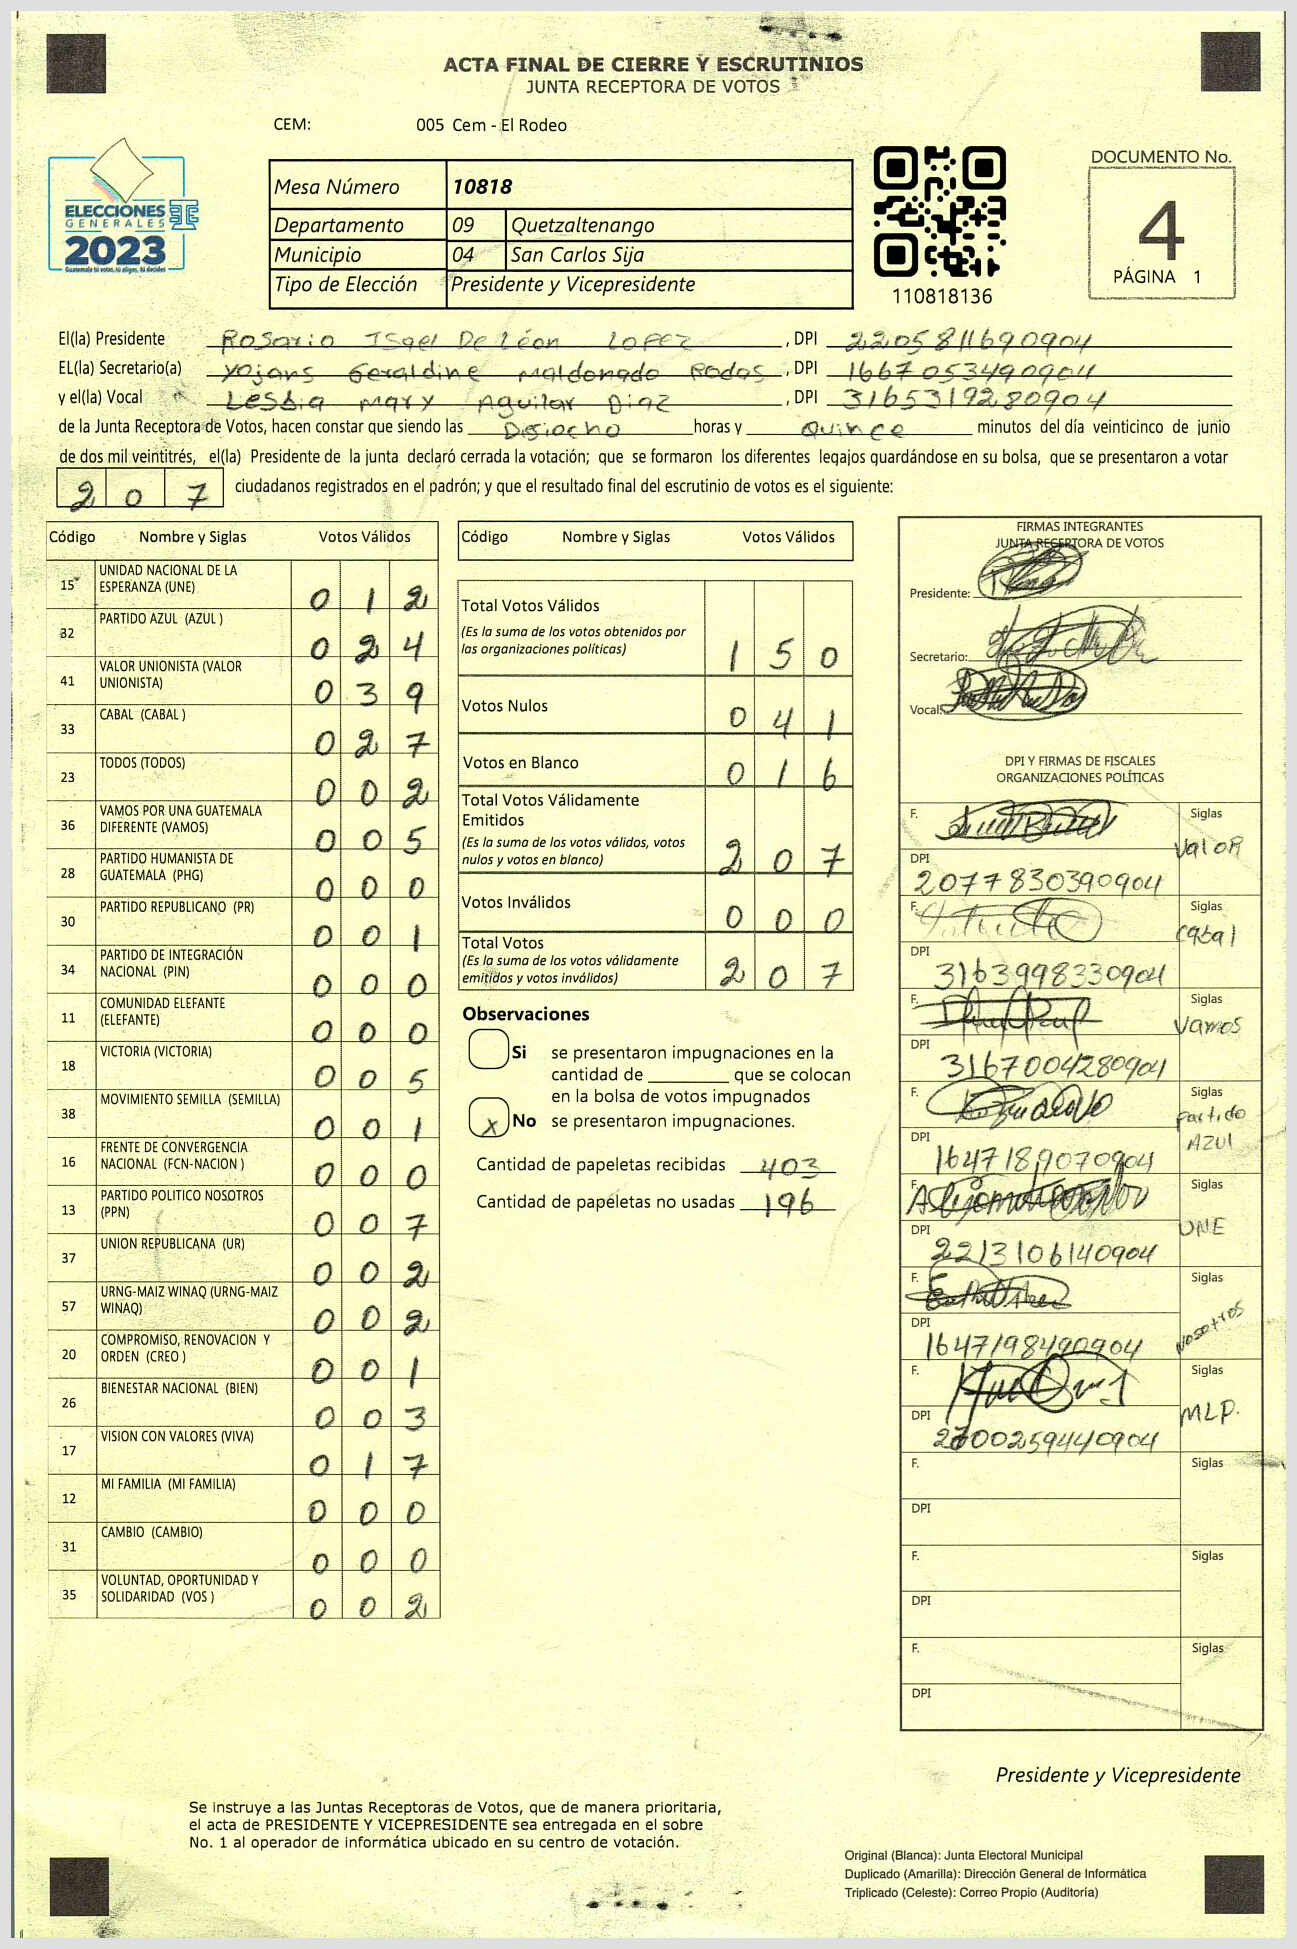 ACTA FINAL DE CIERRE Y ESCRUTINIOS
JUNTA RECEPTORA DE VOTOS
CEM: 005 Cem - El Rodeo
ELECCIONES
GENERALES
2023
Guatemala tú votas, tú eliges, tú decides
Mesa Número 10818
Departamento 09 Quetzaltenango
Municipio 04 San Carlos Sija
Tipo de Elección Presidente y Vicepresidente
110818136
DOCUMENTO No.
4
PÁGINA 1
El(la) Presidente Rosario Isael De Léon Lopez, DPI 2205811690904
EL(la) Secretario(a) Yojans Geraldine Maldonado Rodas, DPI 1667053490904
y el(la) Vocal Lesbia Mary Aguilar Diaz, DPI 3165319280904
de la Junta Receptora de Votos, hacen constar que siendo las Desiocho horas y Quince minutos del día veinticinco de junio
de dos mil veintitrés, el(la) Presidente de la junta declaró cerrada la votación; que se formaron los diferentes legajos guardándose en su bolsa, que se presentaron a votar
207 ciudadanos registrados en el padrón; y que el resultado final del escrutinio de votos es el siguiente:
Código Nombre y Siglas Votos Válidos
15 UNIDAD NACIONAL DE LA ESPERANZA (UNE) 012
32 PARTIDO AZUL (AZUL ) 024
41 VALOR UNIONISTA (VALOR UNIONISTA) 039
33 CABAL (CABAL ) 027
23 TODOS (TODOS) 002
36 VAMOS POR UNA GUATEMALA DIFERENTE (VAMOS) 005
28 PARTIDO HUMANISTA DE GUATEMALA (PHG) 000
30 PARTIDO REPUBLICANO (PR) 001
34 PARTIDO DE INTEGRACIÓN NACIONAL (PIN) 000
11 COMUNIDAD ELEFANTE (ELEFANTE) 000
18 VICTORIA (VICTORIA) 005
38 MOVIMIENTO SEMILLA (SEMILLA) 001
16 FRENTE DE CONVERGENCIA NACIONAL (FCN-NACION ) 000
13 PARTIDO POLITICO NOSOTROS (PPN) 007
37 UNION REPUBLICANA (UR) 002
57 URNG-MAIZ WINAQ (URNG-MAIZ WINAQ) 002
20 COMPROMISO, RENOVACION Y ORDEN (CREO ) 001
26 BIENESTAR NACIONAL (BIEN) 003
17 VISION CON VALORES (VIVA) 017
12 MI FAMILIA (MI FAMILIA) 000
31 CAMBIO (CAMBIO) 000
35 VOLUNTAD, OPORTUNIDAD Y SOLIDARIDAD (VOS ) 002
Código Nombre y Siglas Votos Válidos
Total Votos Válidos
(Es la suma de los votos obtenidos por
las organizaciones políticas) 150
Votos Nulos 041
Votos en Blanco 016
Total Votos Válidamente
Emitidos
(Es la suma de los votos válidos, votos
nulos y votos en blanco) 207
Votos Inválidos 000
Total Votos
(Es la suma de los votos válidamente
emitidos y votos inválidos) 207
Observaciones
Si se presentaron impugnaciones en la
cantidad de ________ que se colocan
en la bolsa de votos impugnados
x No se presentaron impugnaciones.
Cantidad de papeletas recibidas 403
Cantidad de papeletas no usadas 196
FIRMAS INTEGRANTES
JUNTA RECEPTORA DE VOTOS
Presidente:
Secretario:
Vocal:
DPI Y FIRMAS DE FISCALES
ORGANIZACIONES POLÍTICAS
F. Siglas Valor
DPI 2077830390904
F. Siglas Cabal
DPI 3163998330904
F. Siglas Vamos
DPI 3167004280904
F. Siglas Partido AZUl
DPI 1647189070904
F. Siglas UNE
DPI 2213106140904
F. Siglas Nosotros
DPI 1647198490904
F. Siglas MLP.
DPI
F. Siglas
DPI
F. Siglas
DPI
F. Siglas
DPI
Presidente y Vicepresidente
Se instruye a las Juntas Receptoras de Votos, que de manera prioritaria,
el acta de PRESIDENTE Y VICEPRESIDENTE sea entregada en el sobre
No. 1 al operador de informática ubicado en su centro de votación.
Original (Blanca): Junta Electoral Municipal
Duplicado (Amarilla): Dirección General de Informática
Triplicado (Celeste): Correo Propio (Auditoría)